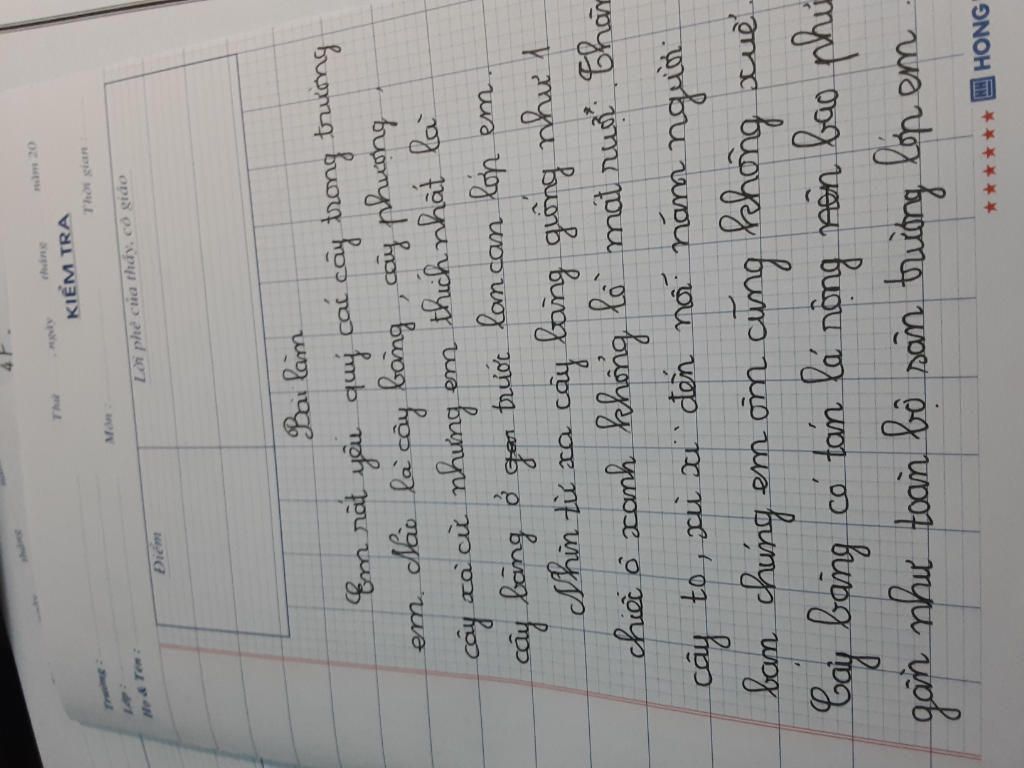 4 F.
Thứ ngày tháng năm 20
KIỂM TRA
Môn : Thời gian :
Trường :
Lớp :
Họ & Tên :
Điểm Lời phê của thầy, cô giáo
Bài làm
Em rất yêu quý cái cây trong trường
em. Nào là cây bàng, cây phượng,
cây xà cừ nhưng em thích nhất là
cây bàng ở trước lan can lớp em.
Nhìn từ xa cây bàng giống như 1
chiếc ô xanh khổng lồ mát rượi. Thân
cây to, xù xì đến nỗi năm người
ban chúng em ôm cũng không xuể.
Cây bàng có tán lá rộng nên bao phủ
gần như toàn bộ sân trường lớp em.
HONG